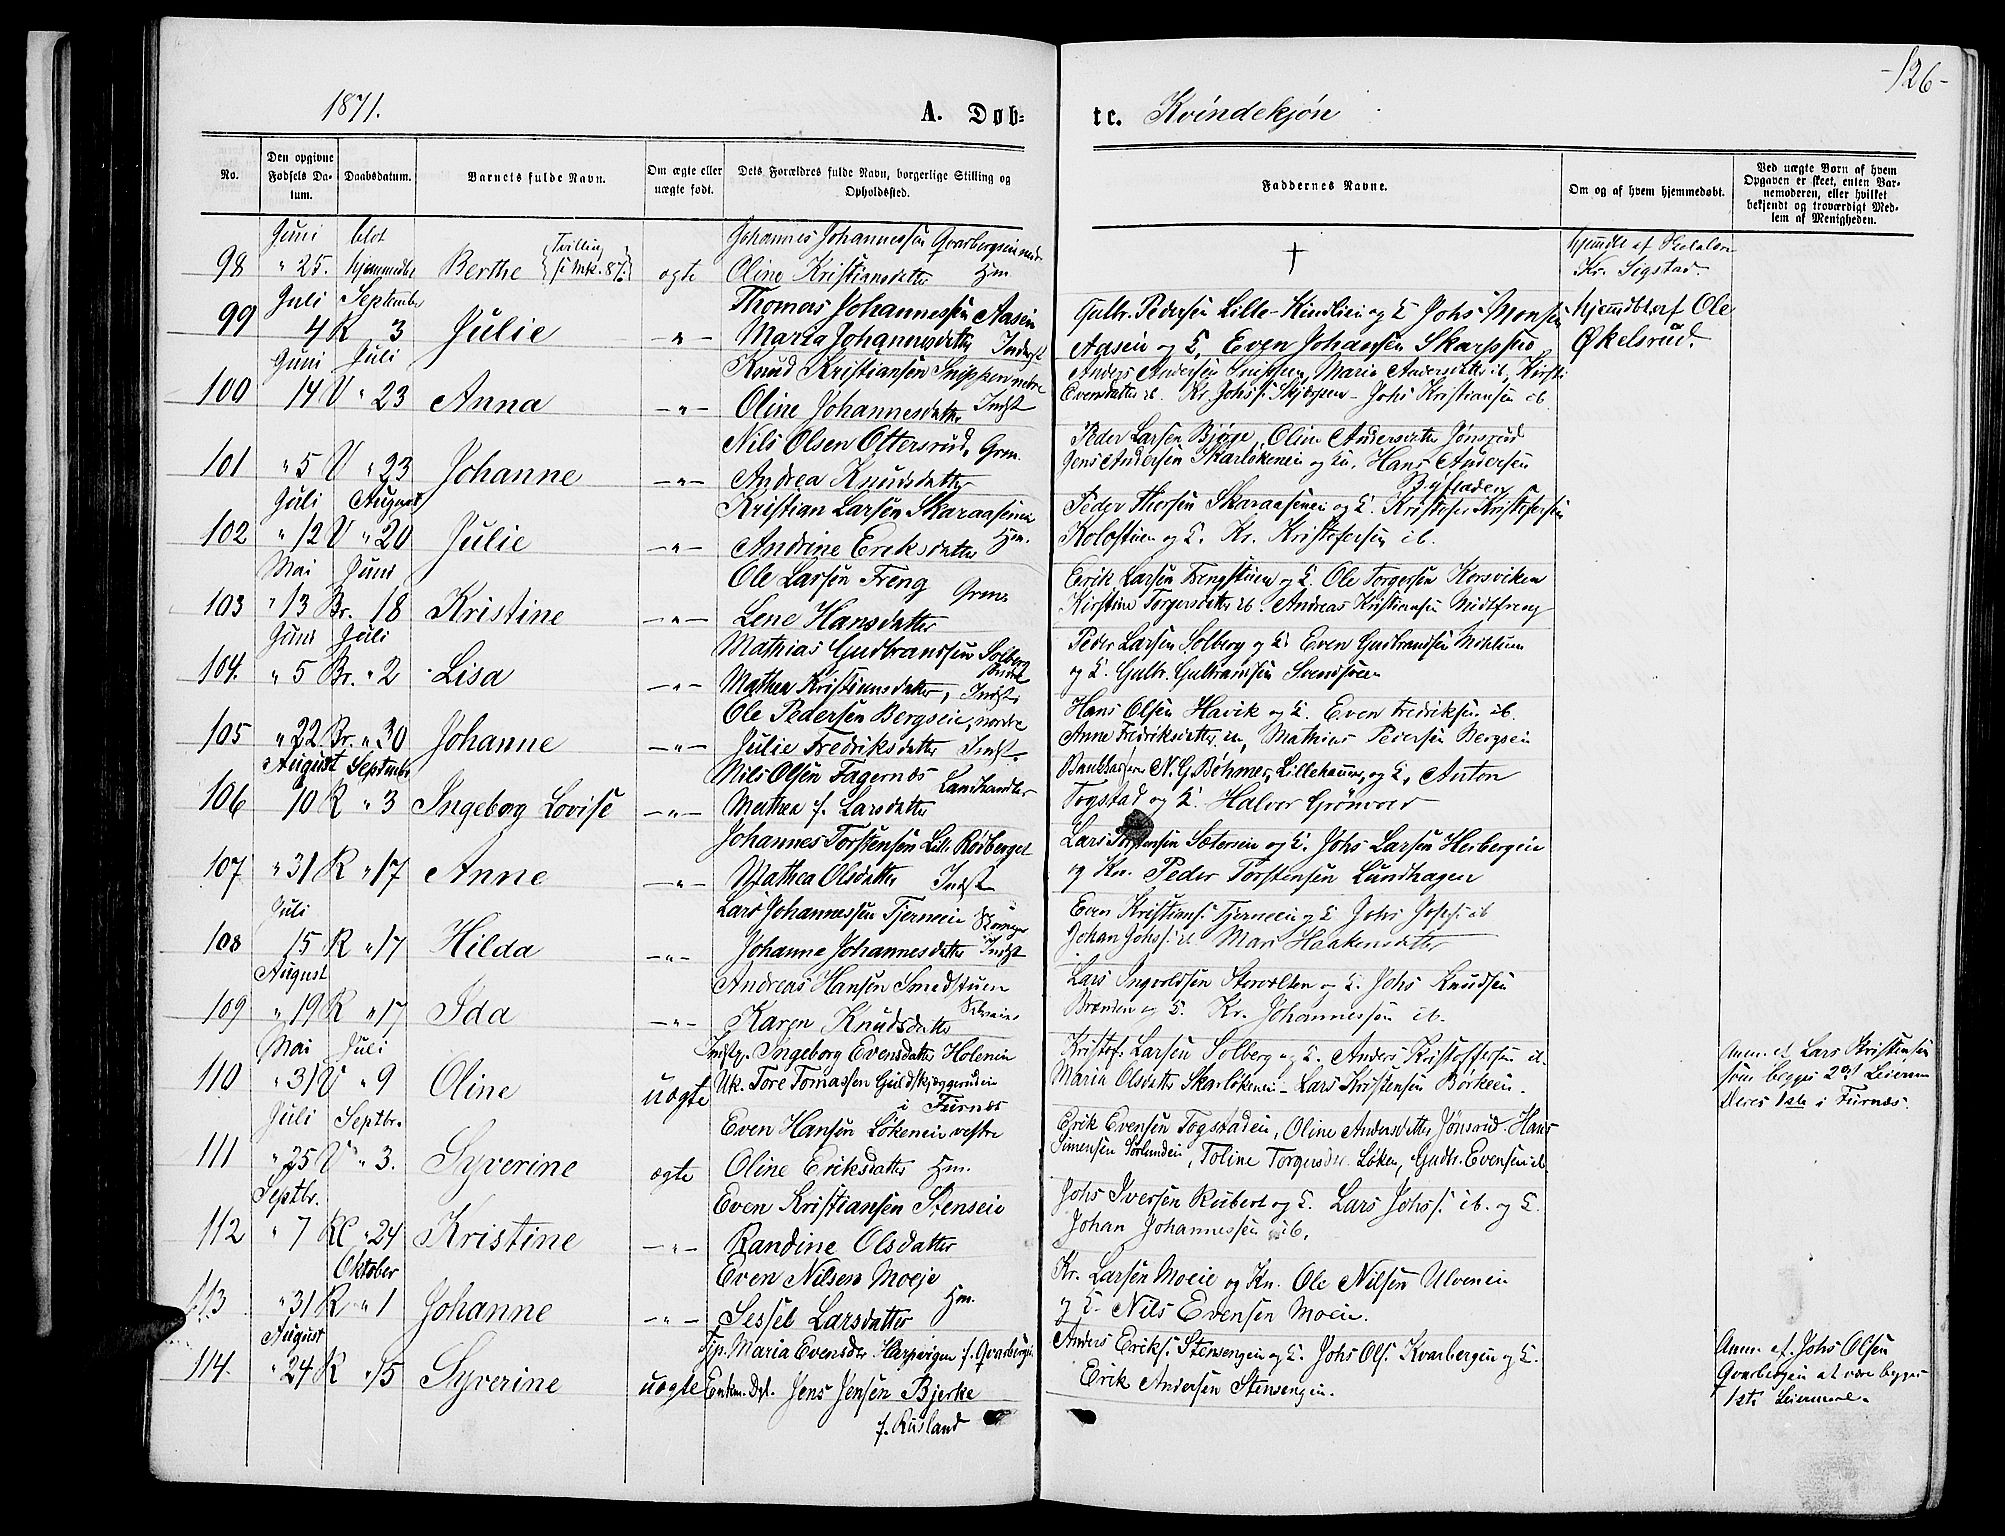 -126-
1871. A. Døb= te. Kvindekjøn
No.
Den opgivne Fødsels Da- tum.
Daabsdatum.
Barnets fulde Navn.
Om ægte eller uægte født.
Dets Forældres fulde Navn, borgerlige Stilling og Opholdssted.
Faddernes Navne.
Om og af hvem hjemmedøbt.
Ved uægte Børn af hvem Opgaven er skeet, enten Bar- nemoderen, eller hvilket bekjendt og troværdigt Med- lem af Menigheden.
Juni blot Johannes Johannessen Qvarbergseie
98 " 25. hjemmedbt Berthe {Tvilling til Mk. 87.} ægte Oline Kristiansdatter Hm. † hjemdt af
Kr. Sigstad.
Juli September Thomas Johannessen Aasein Gulbr. Pedersen Lille-Kindlien og K. Johs Monsen hjemdbt af Ole
99 4 R 3 Julie —"— Maria Johannesdatter Indst Aasein og K. Even Johansen Økelsrud.
Juni Juli Knud Kristiansen Snippen nedre Anders Andersen Snippen, Marie Andersdatter ib, Kirsti
100 14 V " 23 Anna —"— Oline Johannesdatter Indst Evensdatter ib. Kr. Johs. - Johs Kristiansen ib.
Nils Olsen Ottersrud, Grm. Peder Larsen Bjøge, Oline Andersdatter Jønsrud
101 " 5 V " 23 Johanne —"— Andrea Knudsdatter Jens Andersen Skarløkenein og Kn. Hans Andersen
Juli August Kristian Larsen Skaraasen Peder Thorsen Skaraasen og K. Kristofer Kristofersen
102 " 12 V " 20 Julie —"— Andrine Eriksdatter Hm. Kolostuen og K. Kr. Kristofersen ib.
Mai Juni Ole Larsen Freng Grm. Erik Larsen Frengstuen og K. Ole Torgersen Korsviken
103 " 13 Br. 18 Kristine —"— Lene Hansdatter Kirstine Torgersdatter ib. Andreas Kristiansen Midtfreng
Juni Juli Mathias Gudbrandsen Solberg Peder Larsen Solberg og K. Even Gudbrandsen
104. " 5 Br. " 2 Lisa —"— Mathea Kristiansdatter, Indst. og K. Gulbr. Gulbrandsen Svendsveen
Ole Pedersen Bergseie, nordre Hans Olsen Havik og K. Even Fredriksen ib.
105 " 22 Br. " 30 Johanne —"— Julie Fredriksdatter Indst. Anne Fredriksdatter ib, Mathias Pedersen Bergsein
August Septembr Nils Olsen Fagernæs Landhandler N. G. Bøhmer, Lillehammer, og K. Anton
106 10 R " 3 Ingeborg Lovise —"— Mathea f. Larsdatter Togstad og K. Halvor Grønvold
Johannes Torstensen Lille Rødberget Lars Torstensen Sætersein og K. Johs Larsen Herbergeie
107 " 31 R " 17 Anne —"— Mathea Olsdatter Indst og Kn. Peder Torstensen Lundhagen
Juli Lars Johannessen Tjerneein Skomager Even Kristians. Tjerneein og K. Johs Josefs. ib
108 15 R " 17 Hilda —"— Johanne Johannesdatter Indst Johan Johs. ib Mari Haakensdatter
August Andreas Hansen Smedstuen Lars Ingvoldsen Storvolten og K. Johs Knudsen
109 " 19 R " 17 Ida —"— Karen Knudsdatter Brenden og K. Kr. Johannessen ib.
Mai Juli Indstp. Ingeborg Evensdatter Holenein Kristof. Larsen Solberg og K. Anders Kristoffersen ib. Anm. af Lars Kristensen
110 " 31 V " 9 Oline uægte Uk. Tore Tomassen Guldskjæggerudein Maria Olsdatter Skarløkenein - Lars Kristensen Børkeein. som begges 2det Leierm
i Furnæs Deres 1ste i Furnæs.
Juli Septbr. Even Hansen Løkenein vestre Erik Evensen Togstadein, Oline Andersdatter Jønsrud - Hans
111 " 25 V " 3. Syverine ægte Oline Eriksdatter Hm. Simensen Sørlundein, Toline Torgersdr. Løken, Gudbr. Evensen ib
Septbr. Even Kristiansen Stenseie Johs Iversen Ruberd og K. Lars Johs. ib. og K.
112 " 7 Kl " 24 Kristine —"— Randine Olsdatter Johan Johannessen ib.
Oktober Even Nilsen Moeje Kr. Larsen Moeie og Kn. Ole Nilsen Ulvenein
113 " 31 R " 1 Johanne —"— Sessel Larsdatter Hm. og K. Nils Evensen Moein.
August Tjp. Maria Evensdr. Harpvigen f. Qvarbergein Anders Eriks. Stensengen og K. Johs Ols. Kvarbergen og K. Anm. af Johs Olsen
114. " 24 R " 15 Syverine uægte Enkm. Dgl. Jens Jensen Bjerke Erik Andersen Stensengein. Qvarbergein at være begges
f. Rusland 1ste Leiermaal.